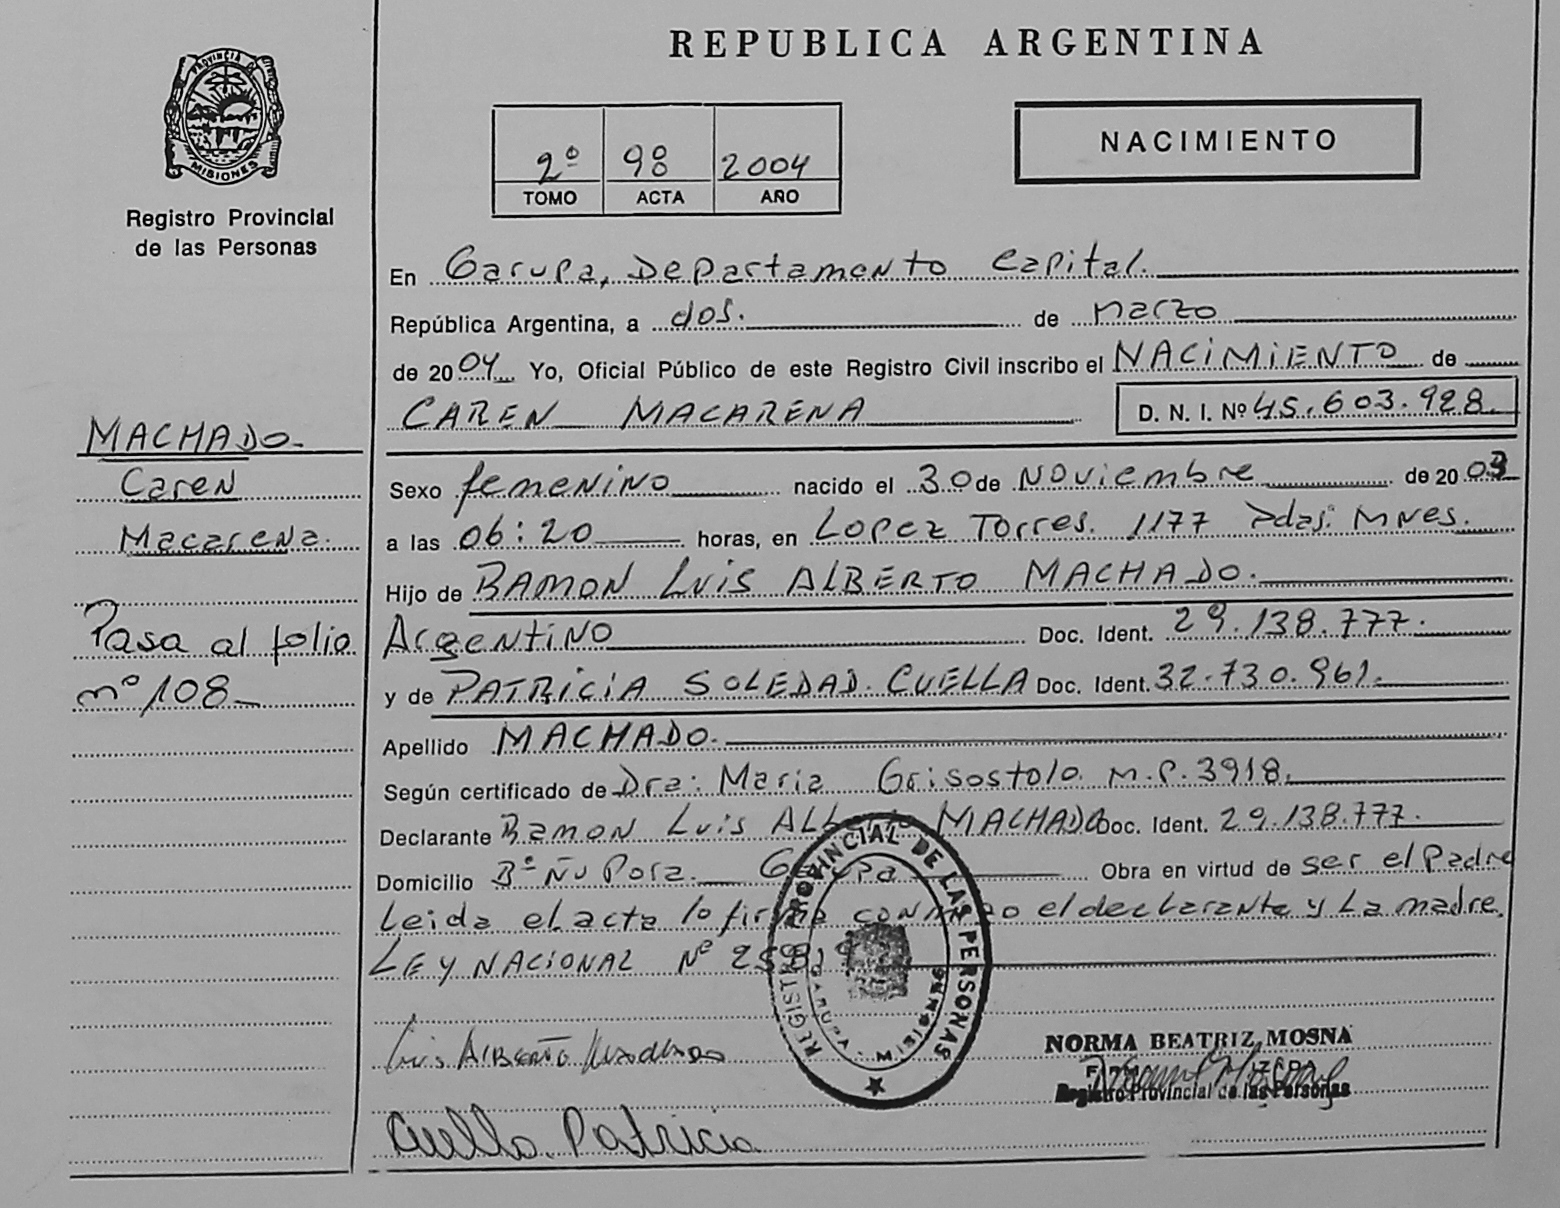 REPUBLICA ARGENTINA
PROVINCIA DE
MISIONES
Registro Provincial
de las Personas
2º 98 2004
TOMO ACTA AÑO
NACIMIENTO
En Garupa, Departamento Capital.
República Argentina, a dos. de marzo
de 2004 Yo, Oficial Público de este Registro Civil inscribo el NACIMIENTO de
CAREN MACARENA D. N. I. Nº 45.603.928
MACHADO.
Caren
Macarena.
Pasa al folio
nº 108
Sexo femenino nacido el 30 de Noviembre de 2003
a las 06:20 horas, en Lopez Torres. 1177 Pdas. Mnes.
Hijo de RAMON LUIS ALBERTO MACHADO.
Argentino Doc. Ident. 29.138.777.
y de PATRICIA SOLEDAD. CUELLA Doc. Ident. 32.730.961.
Apellido MACHADO.
Según certificado de Dra: Maria Grisostolo. M.P. 3918.
Declarante Ramon Luis Alberto MACHADO Doc. Ident. 29.138.777.
Domicilio Bº Ñu Pora. Garupa Obra en virtud de ser el Padre
Leida el acta lo firma conmigo el declarante y La madre.
LEY NACIONAL Nº
REGISTRO PROVINCIAL DE LAS PERSONAS
GARUPA - MISIONES
Luis ALBERTO Machado
NORMA BEATRIZ MOSNA
Registro Provincial de las Personas
Cuella. Patricia